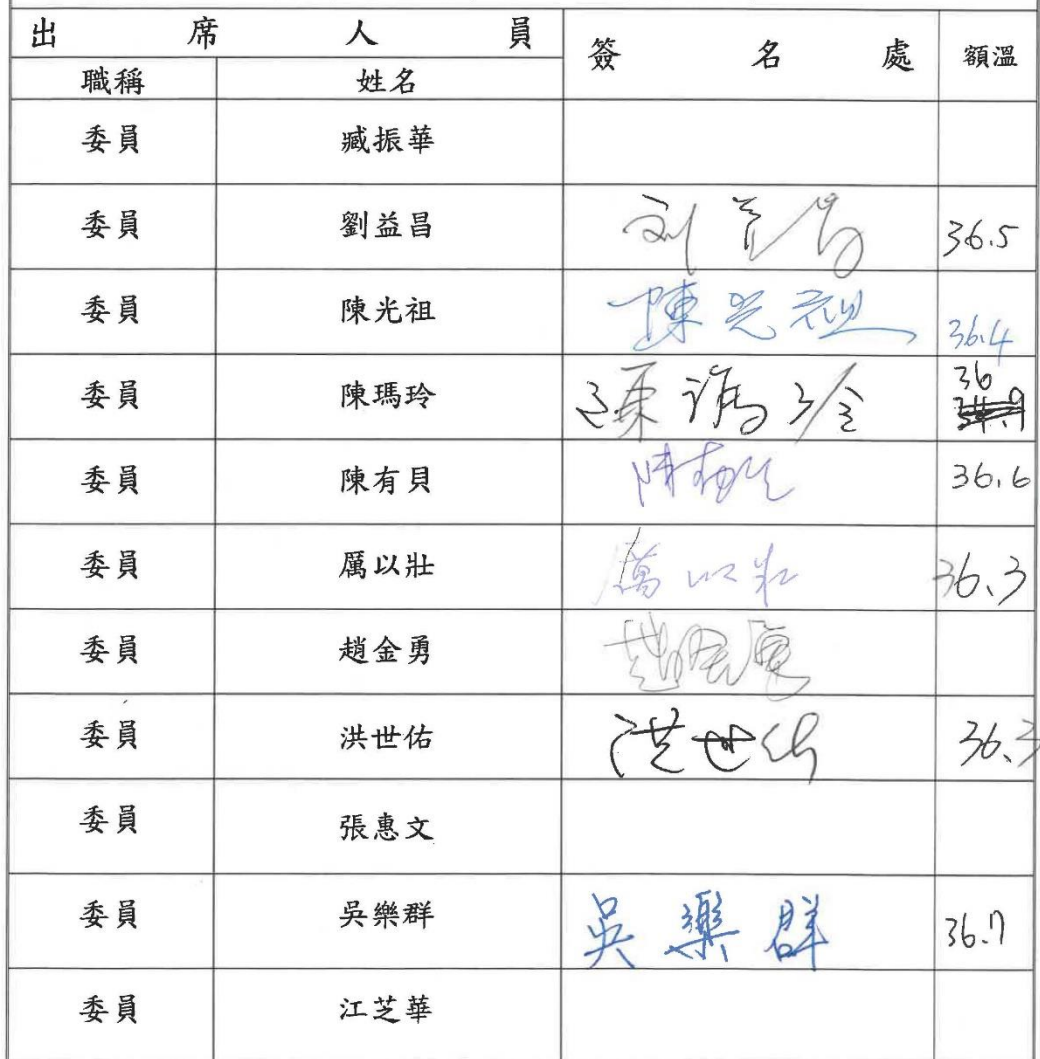 出席人員 簽名處 額溫
職稱 姓名
委員 臧振華
委員 劉益昌 刘益昌 36.5
委員 陳光祖 陳光祖 36.4
委員 陳瑪玲 陳瑪玲 36
委員 陳有貝 陳有貝 36.6
委員 厲以壯 厲以壯 36.3
委員 趙金勇 趙金勇
委員 洪世佑 洪世佑 36.3
委員 張惠文
委員 吳樂群 吳樂群 36.7
委員 江芝華